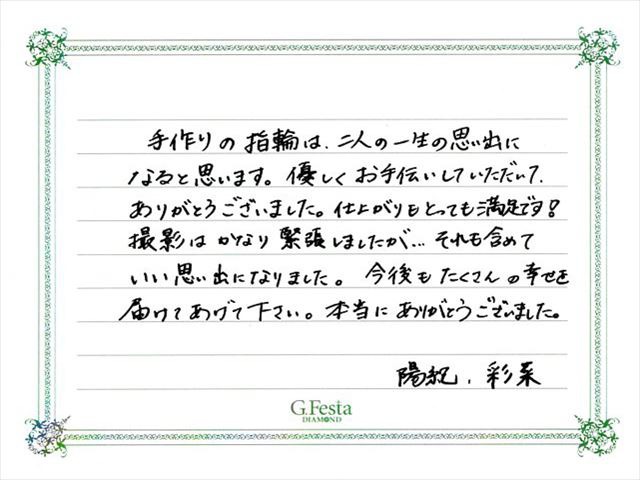 手作りの指輪は、二人の一生の思い出に
なると思います。優しくお手伝いしていただいて、
ありがとうございました。仕上がりもとっても満足です！
撮影はかなり緊張しましたが…それも含めて
いい思い出になりました。今後もたくさんの幸せを
届けてあげて下さい。本当にありがとうございました。
陽紀、彩菜
G.Festa
DIAMOND